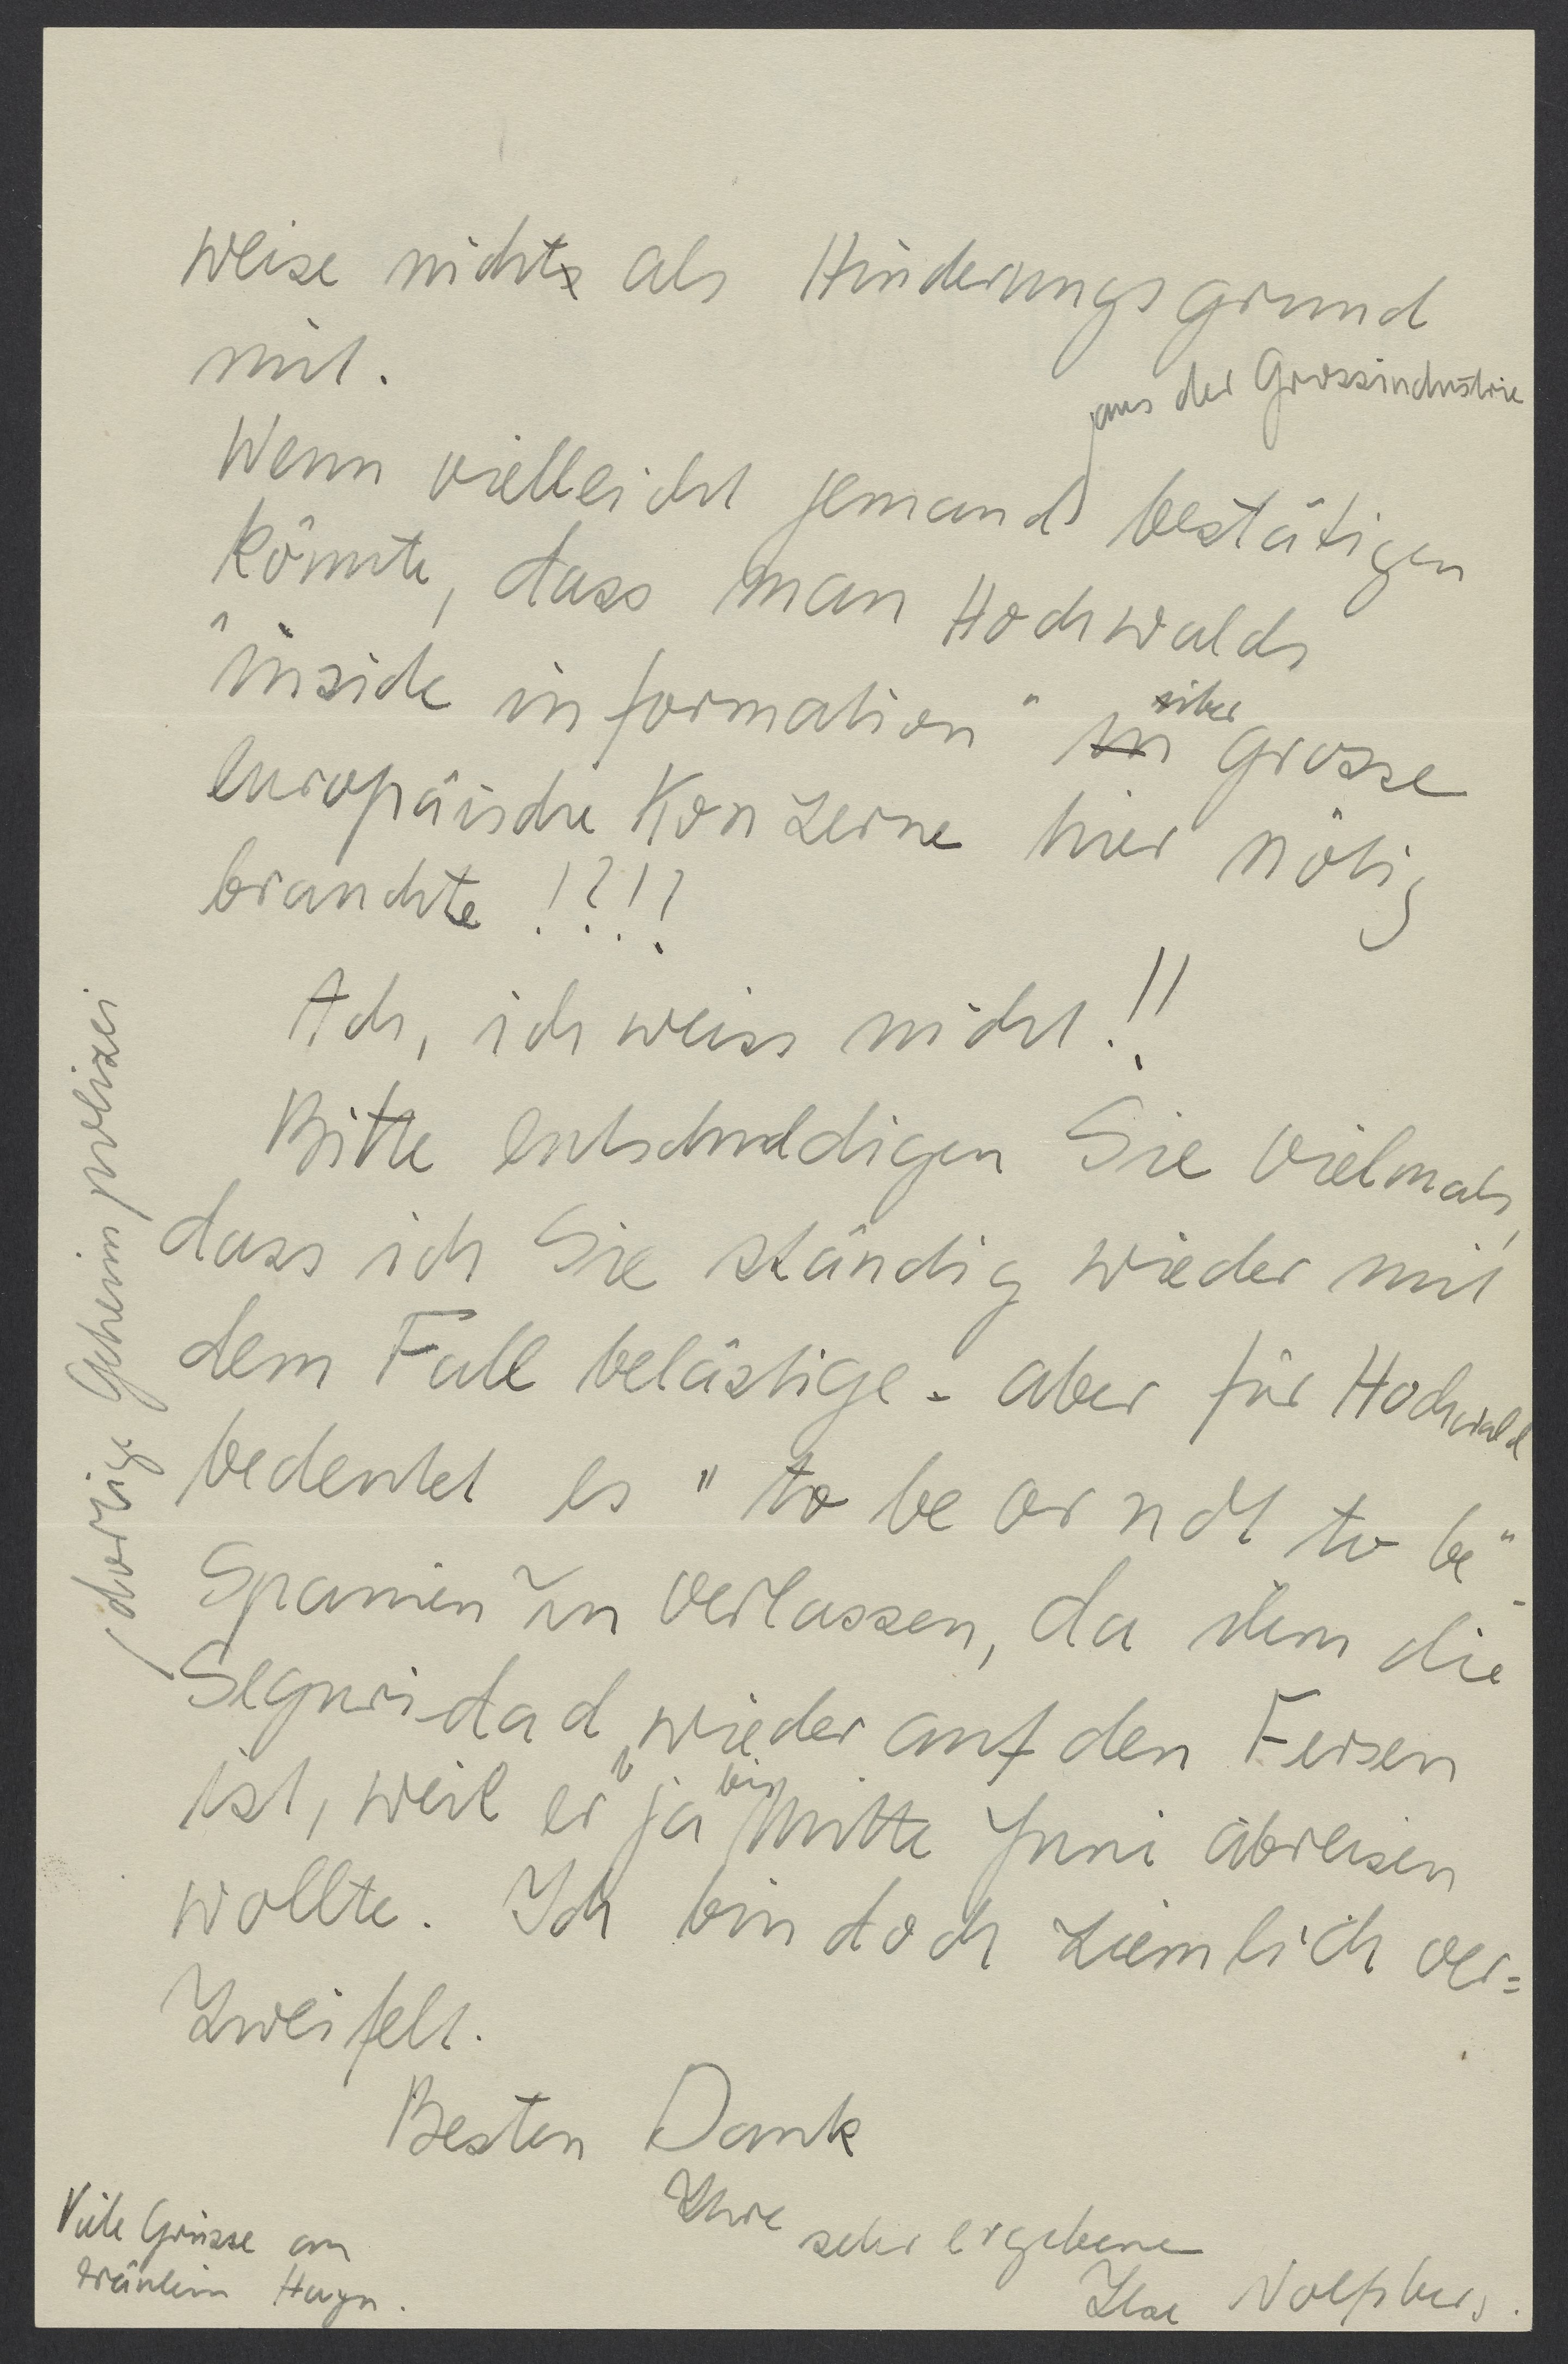 weise nicht als Hinderungsgrund
mit.
aus der Grossindustrie
Wenn vielleicht jemand bestätigen
könnte, dass man Hochwalds
"inside information" über grosse
europäische Konzerne hier nötig
brauchte !?!?
Ach, ich weiss nicht!!
Bitte entschuldigen Sie vielmals,
dass ich Sie ständig wieder mit
dem Fall belästige - aber für Hochwald
bedeutet es "to be or not to be"
Spanien zu verlassen, da ihm die
Seguridad wieder auf den Fersen
ist, weil er ja bis Mitte Juni abreisen
wollte. Ich bin doch ziemlich ver=
zweifelt.
Besten Dank
Ihre
sehr ergebene
Ilse Wolfsberg.
Viele Grüsse an
Fräulein Hagn.
dortige Geheimpolizei